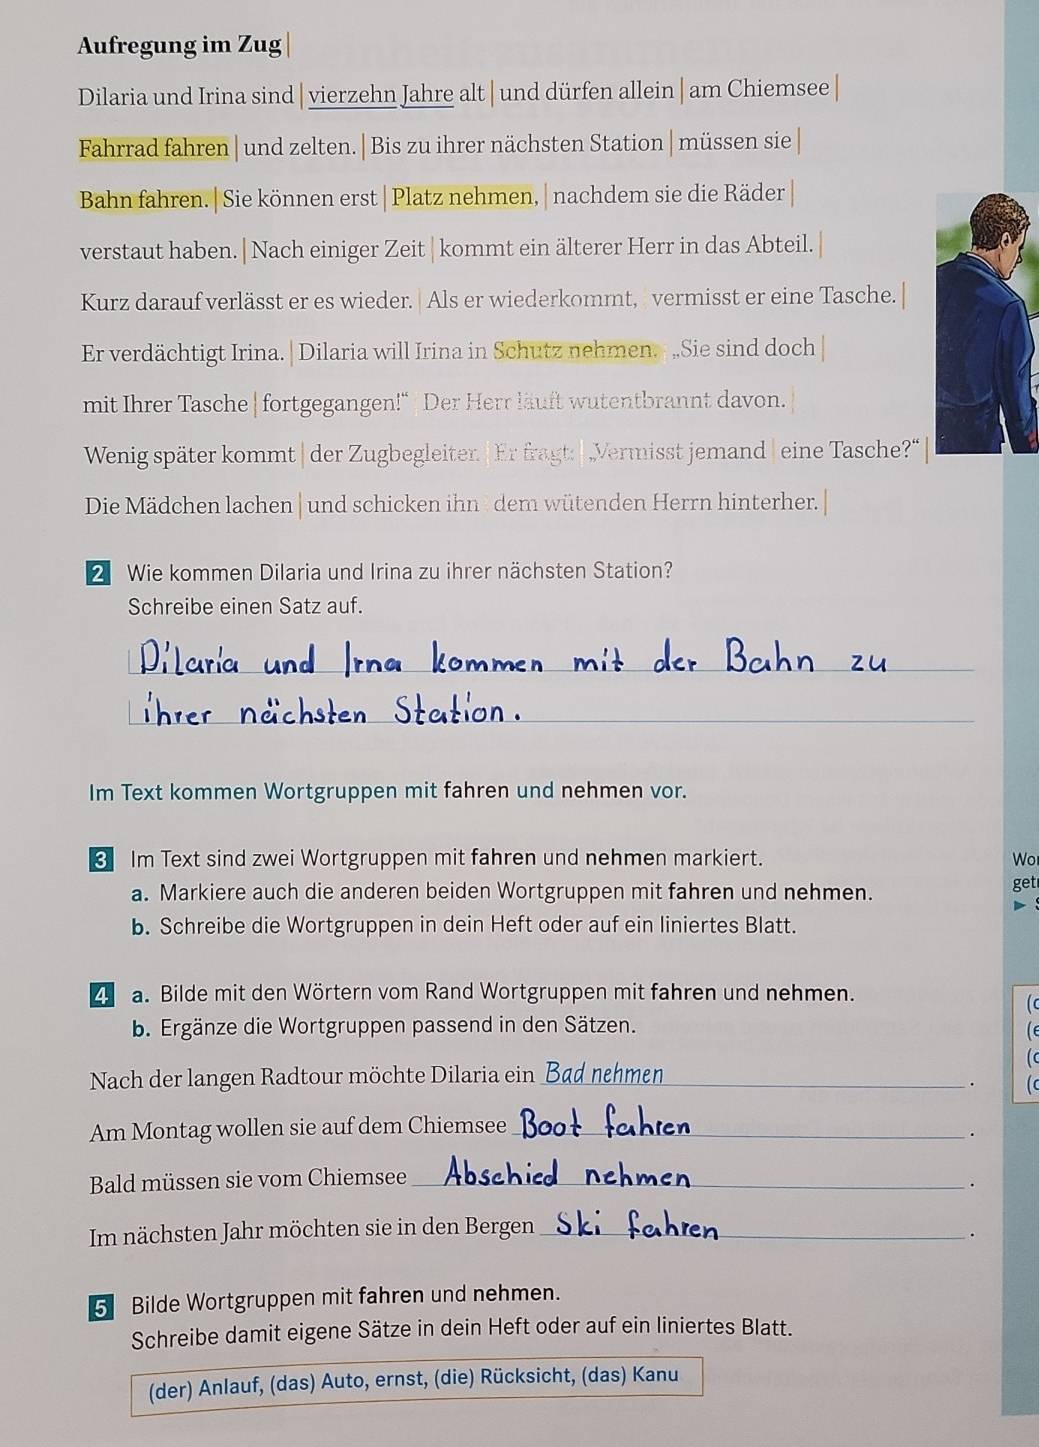 Aufregung im Zug|
Dilaria und Irina sind | vierzehn Jahre alt | und dürfen allein | am Chiemsee |
Fahrrad fahren | und zelten. | Bis zu ihrer nächsten Station | müssen sie |
Bahn fahren. | Sie können erst | Platz nehmen, | nachdem sie die Räder |
verstaut haben. | Nach einiger Zeit | kommt ein älterer Herr in das Abteil. |
Kurz darauf verlässt er es wieder. | Als er wiederkommt, | vermisst er eine Tasche. |
Er verdächtigt Irina. | Dilaria will Irina in Schutz nehmen. | „Sie sind doch |
mit Ihrer Tasche | fortgegangen!“ | Der Herr läuft wutentbrannt davon. |
Wenig später kommt | der Zugbegleiter. | Er fragt: | „Vermisst jemand | eine Tasche?“ |
Die Mädchen lachen | und schicken ihn | dem wütenden Herrn hinterher. |
2 Wie kommen Dilaria und Irina zu ihrer nächsten Station?
Schreibe einen Satz auf.
Dilaria und Irna kommen mit der Bahn zu
ihrer nächsten Station.
Im Text kommen Wortgruppen mit fahren und nehmen vor.
3 Im Text sind zwei Wortgruppen mit fahren und nehmen markiert.
a. Markiere auch die anderen beiden Wortgruppen mit fahren und nehmen.
b. Schreibe die Wortgruppen in dein Heft oder auf ein liniertes Blatt.
4 a. Bilde mit den Wörtern vom Rand Wortgruppen mit fahren und nehmen.
b. Ergänze die Wortgruppen passend in den Sätzen.
Nach der langen Radtour möchte Dilaria ein Bad nehmen.
Am Montag wollen sie auf dem Chiemsee Boot fahren.
Bald müssen sie vom Chiemsee Abschied nehmen.
Im nächsten Jahr möchten sie in den Bergen Ski fahren.
5 Bilde Wortgruppen mit fahren und nehmen.
Schreibe damit eigene Sätze in dein Heft oder auf ein liniertes Blatt.
(der) Anlauf, (das) Auto, ernst, (die) Rücksicht, (das) Kanu